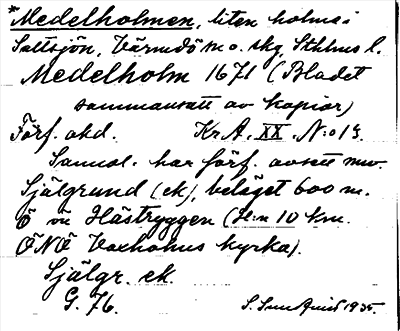 *Medelholmen, liten holme i
Saltsjön, Värmdö sn o. skg, Sthlms l.
Medelholm 1671 (Bladet
sammansatt av kopior)
Förf. okd. Kr.A. XX. N:o 15.
Sannol. har förf. avsett nuv.
Själgrund (ek), beläget 600 m.
Ö om Hästryggen (H:n 10 km.
ÖNÖ Vaxholms kyrka).
Själgr. ek.
G. 76.
S. Sundquist 1935.